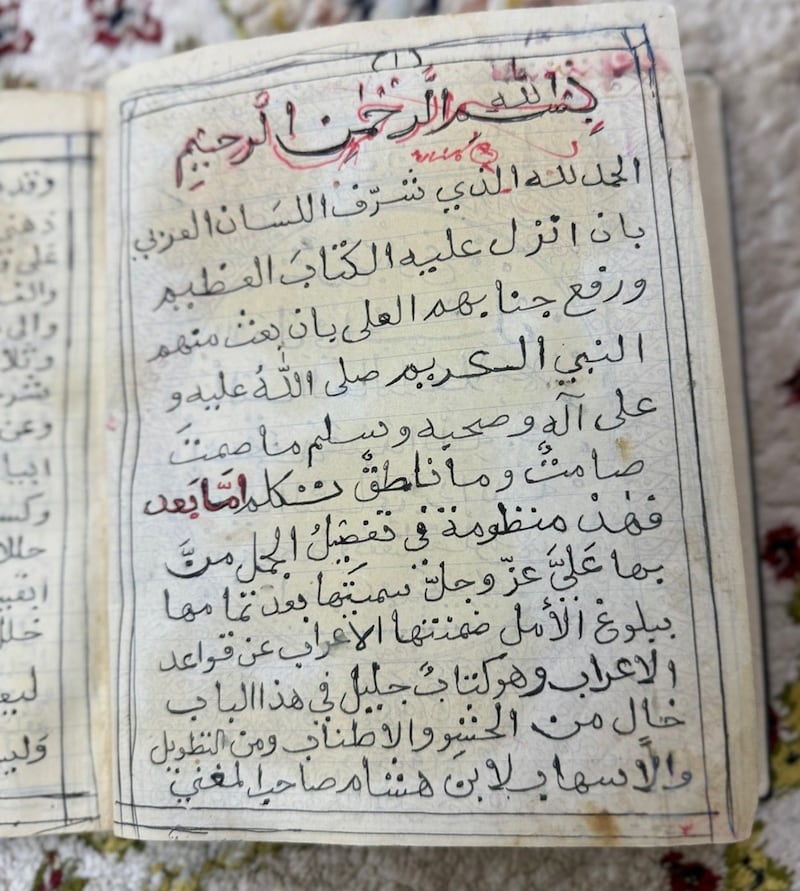 (١)
بِسْمِ اللّٰه الرَّحْمٰنِ الرحِيْمِ
الحمد لله الذي شرّف اللسَان العربي
بان انزل عليه الكتٰابَ العظيم
ورفع جنابهم العلى بان بعث منهم
النبي الكريم صلى اللّٰهُ عليه و
على آله وصحبه وسلم ما صمتَ
صامتٌ وما ناطقٌ تكلم امَّا بَعد
فهٰذه منظومة فى تفصيلُ الجمل منَّ
بها عَلَيَّ عزّ وجلّ سميتها بعد تمامها
ببلوغ الأمل ضمنتها الاعراب عن قواعد
الاعراب وهو كتابٌ جليل في هذا الباب
خالٍ من الحشو والاطناب ومن التطويل
والاسهاب لابن هشام صاحب المغني
وقد
على
وعن